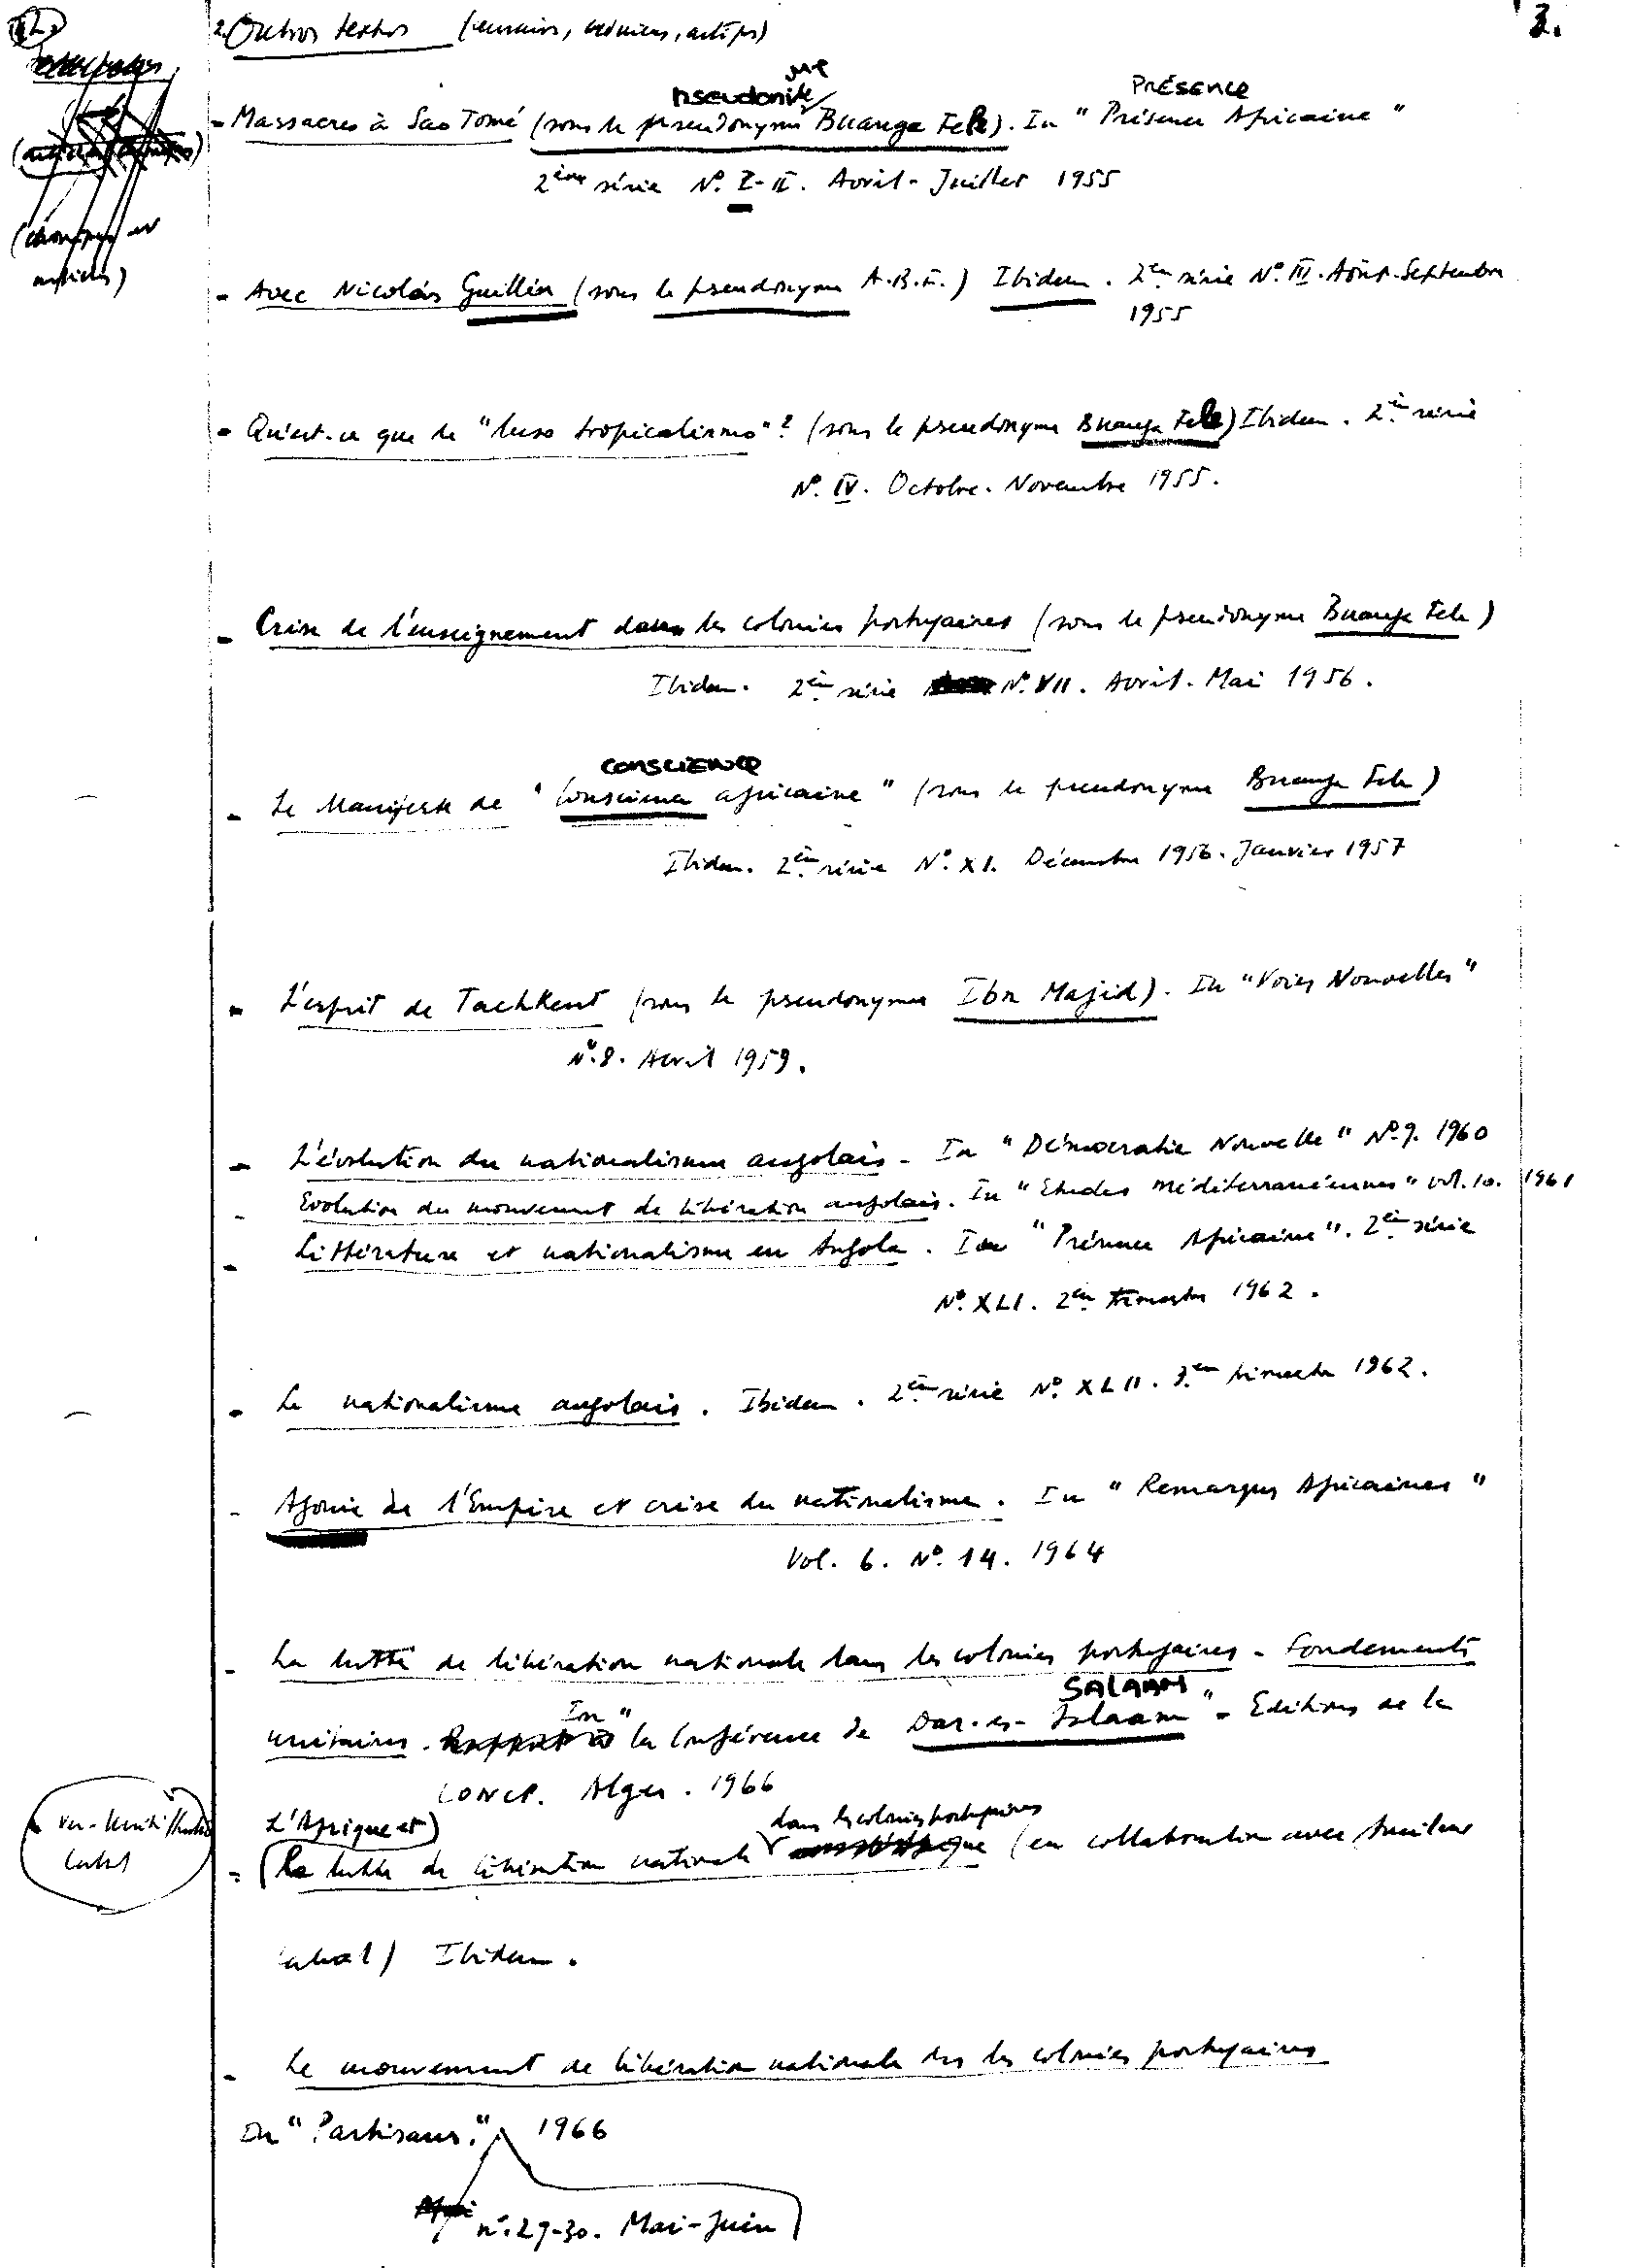 3.
2. Outros textos (ensaios, crónicas, artigos)
pseudonyme
PRÉSENCE
- Massacres à Sao Tomé (sous le pseudonyme Buanga Fele). In "Présence Africaine"
2ème série Nº. I-II. Avril-Juillet 1955
(chroniques et
articles)
- Avec Nicolás Guillén (sous le pseudonyme A.B.F.) Ibidem. 2è. série Nº III. Août-Septembre
1955
- Qu'est-ce que le "luso tropicalismo"? (sous le pseudonyme Buanga Fele) Ibidem. 2è. série
Nº. IV. Octobre-Novembre 1955.
- Crise de l'enseignement dans les colonies portugaises (sous le pseudonyme Buanga Fele)
Ibidem. 2è. série Nº. VII. Avril-Mai 1956.
CONSCIENCE
- Le Manifeste de "Conscience africaine" (sous le pseudonyme Buanga Fele)
Ibidem. 2è. série Nº. XI. Décembre 1956-Janvier 1957
- L'esprit de Tachkent (sous le pseudonyme Ibn Majid). In "Voies Nouvelles"
Nº.8. Avril 1959.
- L'évolution du nationalisme angolais - In "Démocratie Nouvelle" Nº.9. 1960
- Evolution du mouvement de libération angolais. In "Etudes Méditerranéennes" vol. 10. 1961
- Littérature et nationalisme en Angola. In "Présence Africaine". 2è. série
Nº. XLI. 2è. trimestre 1962.
- Le nationalisme angolais. Ibidem. 2è. série Nº. XLII. 3.è trimestre 1962.
- Agonie de l'Empire et crise du nationalisme. In "Remarques Africaines"
Vol. 6. Nº. 14. 1964
- La lutte de libération nationale dans les colonies portugaises - Fondements
SALAAM
unitaires. In "la Conférence de Dar-es-Islaam" - Editions de la
CONCP. Alger. 1966
L'Afrique et
dans les colonies portugaises
- (la lutte de libération nationale (en collaboration avec Amilcar
Cabral) Ibidem.
- Le mouvement de libération nationale ds les colonies portugaises
In "Partisans." 1966
nº. 29-30. Mai-Juin